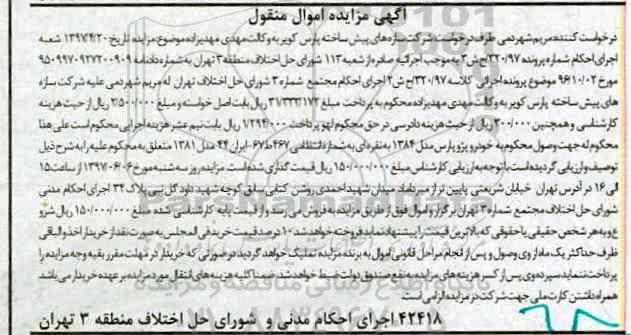 آگهی مزایده اموال منقول
درخواست کننده: مریم شهردمی طرف درخواست: شرکت سازه های پیش ساخته پارس کویر به وکالت مهدی مهدیزاده موضوع: مزایده تاریخ ۱۳۹۷/۴/۲۰ شعبه
اجرای احکام شماره پرونده ۳۲۰/۹۷/اح ش ۳ به موجب اجرائیه صادره از شعبه ۱۱۳ شورای حل اختلاف منطقه ۳ تهران به شماره دادنامه ۹۵۰۹۹۷۰۹۲۷۲۰۰۹۰۹
مورخ ۹۶/۱۰/۰۲ موضوع پرونده اجرایی کلاسه ۳۲۰/۹۷/اح ش ۲ اجرای احکام مجتمع شماره ۳ شورای حل اختلاف تهران له مریم شهردمی علیه شرکت سازه
های پیش ساخته پارس کویر به وکالت مهدی مهدیزاده محکوم به پرداخت مبلغ ۳۱/۳۳۳/۱۷۲ ریال بابت اصل خواسته و مبلغ ۲/۵۰۰/۰۰۰ ریال از حیث هزینه
کارشناسی و همچنین ۳۰۰/۰۰۰ ریال از حیث هزینه دادرسی در حق محکوم لهو پرداخت ۱/۲۹۴/۰۰۰ ریال بابت نیم عشر هزینه اجرایی محکوم است علی هذا
محکوم له جهت وصول محکوم به خودرو پژو پارس مدل ۱۳۸۴ به نقره ای به شماره انتظامی ۴۶۷ط۶۷-ایران ۴۴ مدل ۱۳۸۱ متعلق به محکوم علیه را به شرح ذیل
توصیف و ارزیابی گردیده است با توجه به ارزیابی کارشناس مبلغ ۱۵۰/۰۰۰/۰۰۰ ریال قیمت گذاری شده است. مزایده روز سه شنبه مورخ ۱۳۹۷/۰۶/۰۶ از ساعت ۱۵
الی ۱۶ در آدرس تهران خیابان شریعتی پایین تر از میرداماد میدان شهید احمدی روشن کتابی سابق کوچه شهید داود گل نبی پلاک ۳۴ اجرای احکام مدنی
شورای حل اختلاف مجتمع شماره ۳ تهران برگزار و اموال فوق از طریق مزایده به فروش می رسد و از قیمت پایه کارشناسی شده مبلغ ۱۵۰/۰۰۰/۰۰۰ ریال شرو
ع و به هر شخص حقیقی یا حقوقی که بالاترین قیمت را پیشنهاد نماید فروخته خواهد شد ۱۰ درصد قیمت خرید فی المجلس به صورت نقد از خریدار اخذ و الباقی
ظرف حداکثر یک ماه از وی وصول و پس از انجام مراحل قانونی اموال به برنده مزایده تملیک خواهد گردید در صورتی که خریدار در مهلت مقرر بقیه وجه مزایده را
پرداخت ننماید سپرده وی پس از کسر هزینه های مزایده به نفع صندوق دولت ضبط خواهد شد. ضمنا کلیه هزینه های انتقال مورد مزایده بر عهده خریدار می باشد.
همراه داشتن کارت ملی جهت شرکت در مزایده الزامی است.
۴۲۴۱۸ اجرای احکام مدنی و شورای حل اختلاف منطقه ۳ تهران